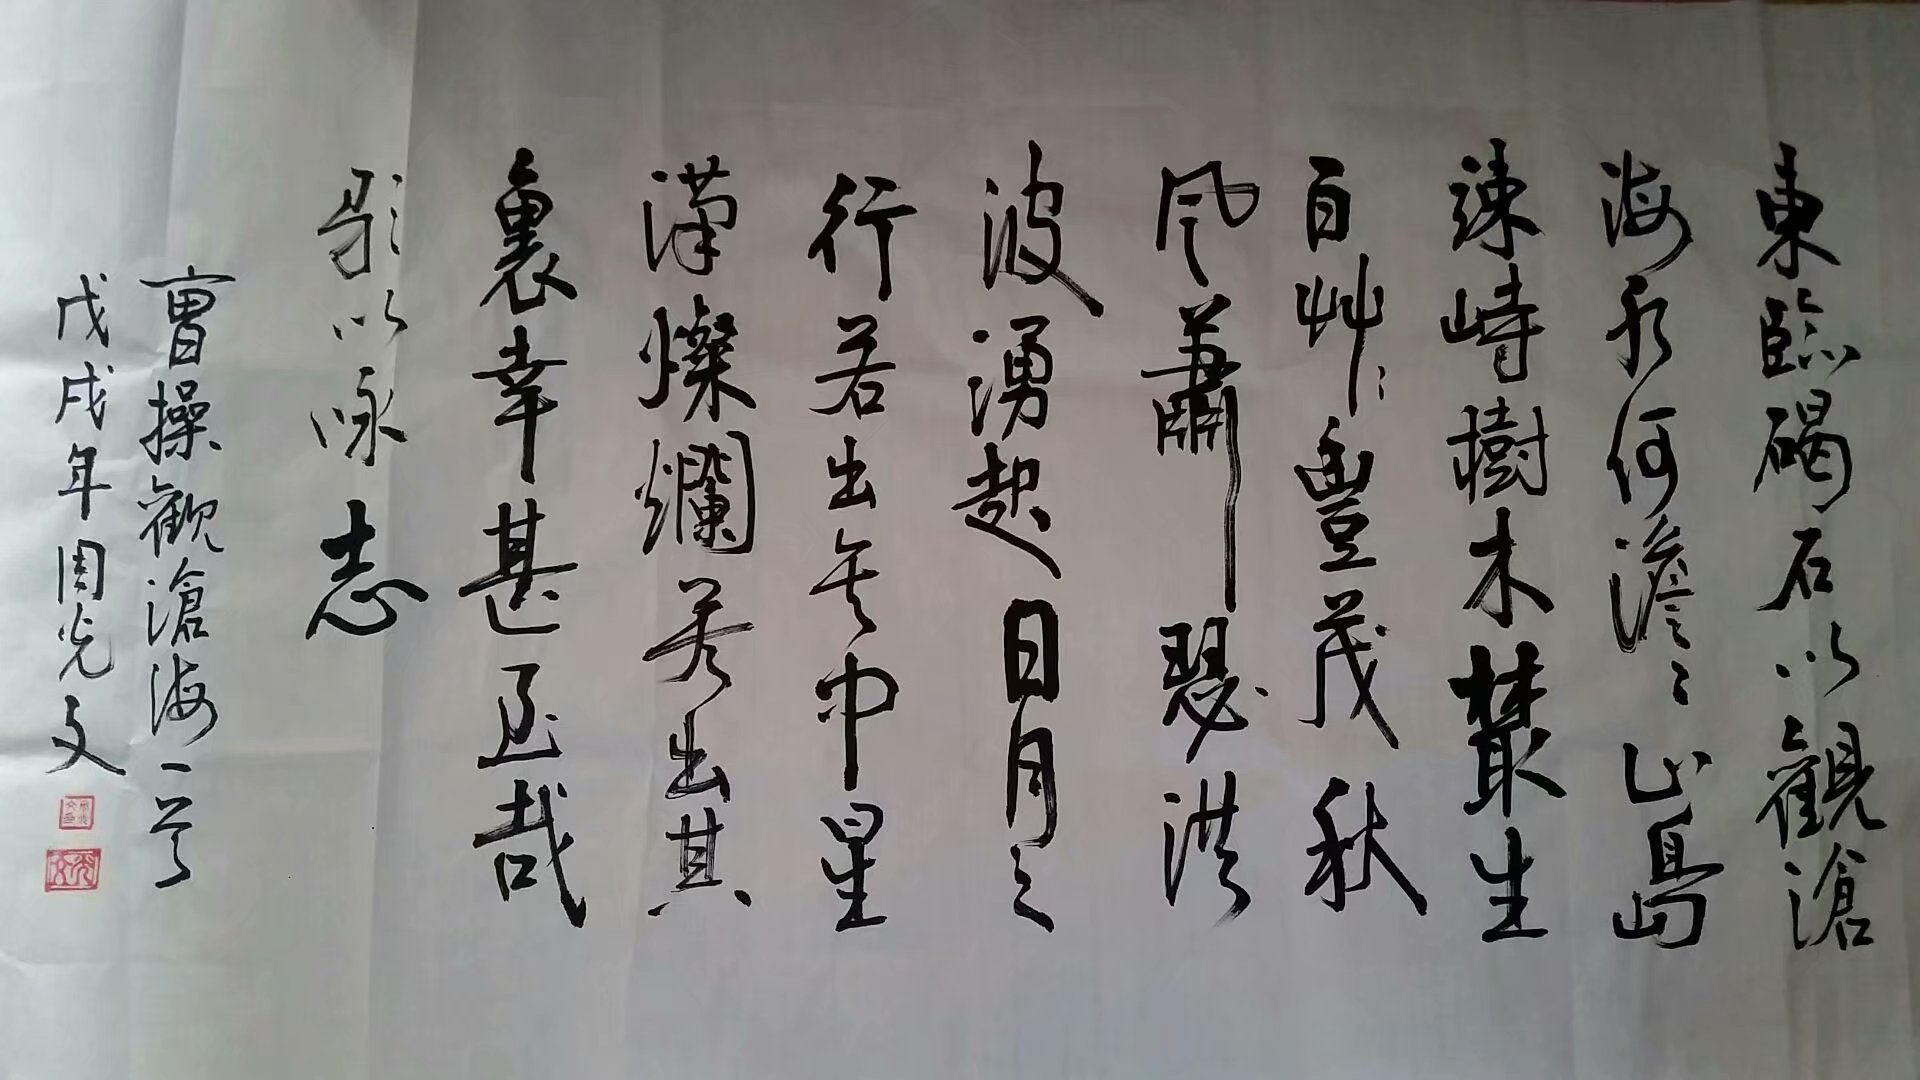 東臨碣石以觀滄
海水何澹々山島
竦峙樹木叢生
百艸豐茂秋
風蕭瑟洪
波湧起日月之
行若出其中星
漢燦爛若出其
裏幸甚至哉
歌以咏志
曹操觀滄海一首
戊戌年周光文